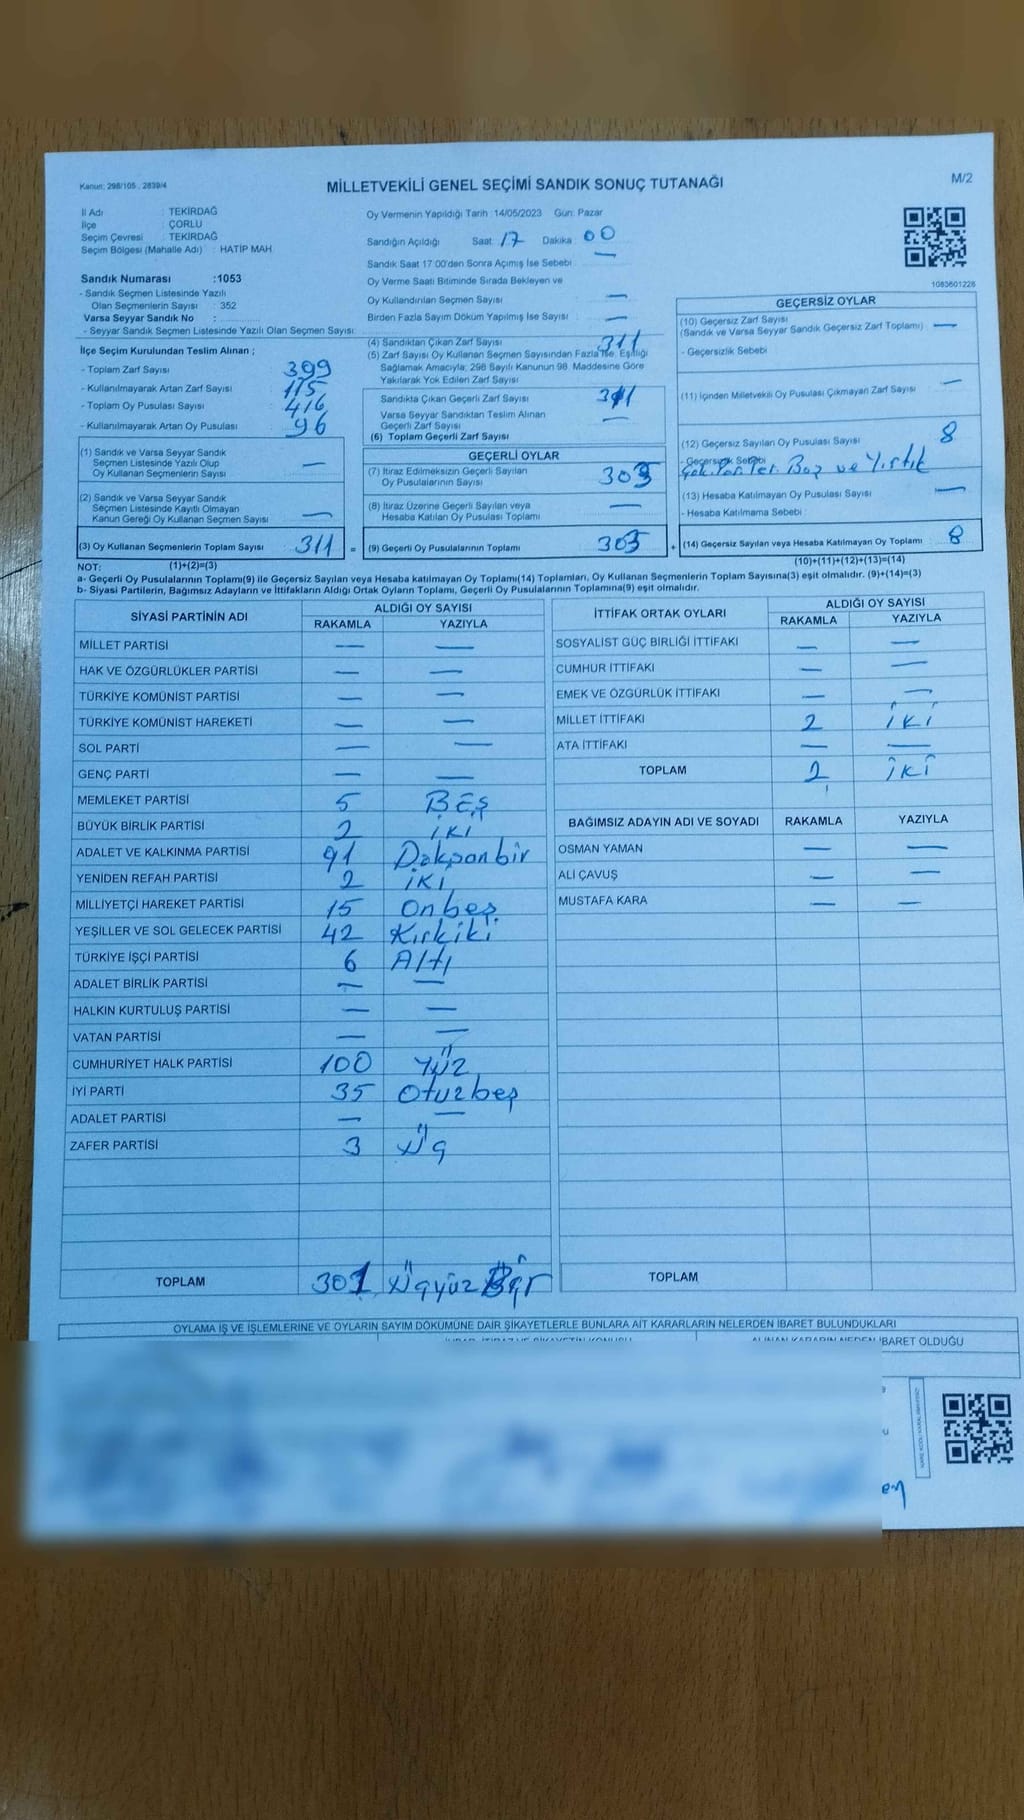 Kanun: 298/105 , 2839/4
MİLLETVEKİLİ GENEL SEÇİMİ SANDIK SONUÇ TUTANAĞI
M/2
İl Adı : TEKİRDAĞ
İlçe : ÇORLU
Seçim Çevresi : TEKİRDAĞ
Seçim Bölgesi (Mahalle Adı) : HATİP MAH
Sandık Numarası :1053
- Sandık Seçmen Listesinde Yazılı
Olan Seçmenlerin Sayısı : 352
Varsa Seyyar Sandık No :
- Seyyar Sandık Seçmen Listesinde Yazılı Olan Seçmen Sayısı:
Oy Vermenin Yapıldığı Tarih :14/05/2023 Gün: Pazar
Sandığın Açıldığı Saat: 17 Dakika : 00
Sandık Saat 17:00'den Sonra Açımış İse Sebebi : —
Oy Verme Saati Bitiminde Sırada Bekleyen ve
Oy Kullandırılan Seçmen Sayısı : —
Birden Fazla Sayım Döküm Yapılmış İse Sayısı : —
1083601226
İlçe Seçim Kurulundan Teslim Alınan ;
- Toplam Zarf Sayısı : 399
- Kullanılmayarak Artan Zarf Sayısı : 115
- Toplam Oy Pusulası Sayısı : 416
- Kullanılmayarak Artan Oy Pusulası : 96
(1) Sandık ve Varsa Seyyar Sandık
Seçmen Listesinde Yazılı Olup
Oy Kullanan Seçmenlerin Sayısı : —
(2) Sandık ve Varsa Seyyar Sandık
Seçmen Listesinde Kayıtlı Olmayan
Kanun Gereği Oy Kullanan Seçmen Sayısı : —
(3) Oy Kullanan Seçmenlerin Toplam Sayısı : 311 =
(4) Sandıktan Çıkan Zarf Sayısı : 311
(5) Zarf Sayısı Oy Kullanan Seçmen Sayısından Fazla İse, Eşitliği
Sağlamak Amacıyla; 298 Sayılı Kanunun 98. Maddesine Göre
Yakılarak Yok Edilen Zarf Sayısı :
Sandıkta Çıkan Geçerli Zarf Sayısı : 311
Varsa Seyyar Sandıktan Teslim Alınan
Geçerli Zarf Sayısı : —
(6) Toplam Geçerli Zarf Sayısı :
GEÇERLİ OYLAR
(7) İtiraz Edilmeksizin Geçerli Sayılan
Oy Pusulalarının Sayısı : 303
(8) İtiraz Üzerine Geçerli Sayılan veya
Hesaba Katılan Oy Pusulası Toplamı : —
(9) Geçerli Oy Pusulalarının Toplamı : 303 +
GEÇERSİZ OYLAR
(10) Geçersiz Zarf Sayısı
(Sandık ve Varsa Seyyar Sandık Geçersiz Zarf Toplamı) : —
- Geçersizlik Sebebi :
(11) İçinden Milletvekili Oy Pusulası Çıkmayan Zarf Sayısı : —
(12) Geçersiz Sayılan Oy Pusulası Sayısı : 8
- Geçersizlik Sebebi : Boş ve Yırtık
(13) Hesaba Katılmayan Oy Pusulası Sayısı : —
- Hesaba Katılmama Sebebi :
(14) Geçersiz Sayılan veya Hesaba Katılmayan Oy Toplamı : 8
NOT: (1)+(2)=(3)
(10)+(11)+(12)+(13)=(14)
a- Geçerli Oy Pusulalarının Toplamı(9) ile Geçersiz Sayılan veya Hesaba katılmayan Oy Toplamı(14) Toplamları, Oy Kullanan Seçmenlerin Toplam Sayısına(3) eşit olmalıdır. (9)+(14)=(3)
b- Siyasi Partilerin, Bağımsız Adayların ve İttifakların Aldığı Ortak Oyların Toplamı, Geçerli Oy Pusulalarının Toplamına(9) eşit olmalıdır.
SİYASİ PARTİNİN ADI ALDIĞI OY SAYISI
RAKAMLA YAZIYLA
MİLLET PARTİSİ — —
HAK VE ÖZGÜRLÜKLER PARTİSİ — —
TÜRKİYE KOMÜNİST PARTİSİ — —
TÜRKİYE KOMÜNİST HAREKETİ — —
SOL PARTİ — —
GENÇ PARTİ — —
MEMLEKET PARTİSİ 5 BEŞ
BÜYÜK BİRLİK PARTİSİ 2 İKİ
ADALET VE KALKINMA PARTİSİ 91 Doksanbir
YENİDEN REFAH PARTİSİ 2 İKİ
MİLLİYETÇİ HAREKET PARTİSİ 15 Onbeş
YEŞİLLER VE SOL GELECEK PARTİSİ 42 Kırkiki
TÜRKİYE İŞÇİ PARTİSİ 6 Altı
ADALET BİRLİK PARTİSİ — —
HALKIN KURTULUŞ PARTİSİ — —
VATAN PARTİSİ — —
CUMHURİYET HALK PARTİSİ 100 Yüz
İYİ PARTİ 35 Otuzbeş
ADALET PARTİSİ — —
ZAFER PARTİSİ 3 Üç
TOPLAM 301 Üçyüz Bir
İTTİFAK ORTAK OYLARI ALDIĞI OY SAYISI
RAKAMLA YAZIYLA
SOSYALİST GÜÇ BİRLİĞİ İTTİFAKI — —
CUMHUR İTTİFAKI — —
EMEK VE ÖZGÜRLÜK İTTİFAKI — —
MİLLET İTTİFAKI 2 İKİ
ATA İTTİFAKI — —
TOPLAM 2 İKİ
BAĞIMSIZ ADAYIN ADI VE SOYADI RAKAMLA YAZIYLA
OSMAN YAMAN — —
ALİ ÇAVUŞ — —
MUSTAFA KARA — —
TOPLAM
OYLAMA İŞ VE İŞLEMLERİNE VE OYLARIN SAYIM DÖKÜMÜNE DAİR ŞİKAYETLERLE BUNLARA AİT KARARLARIN NELERDEN İBARET BULUNDUKLARI
ALINAN KARARIN NEDEN İBARET OLDUĞU